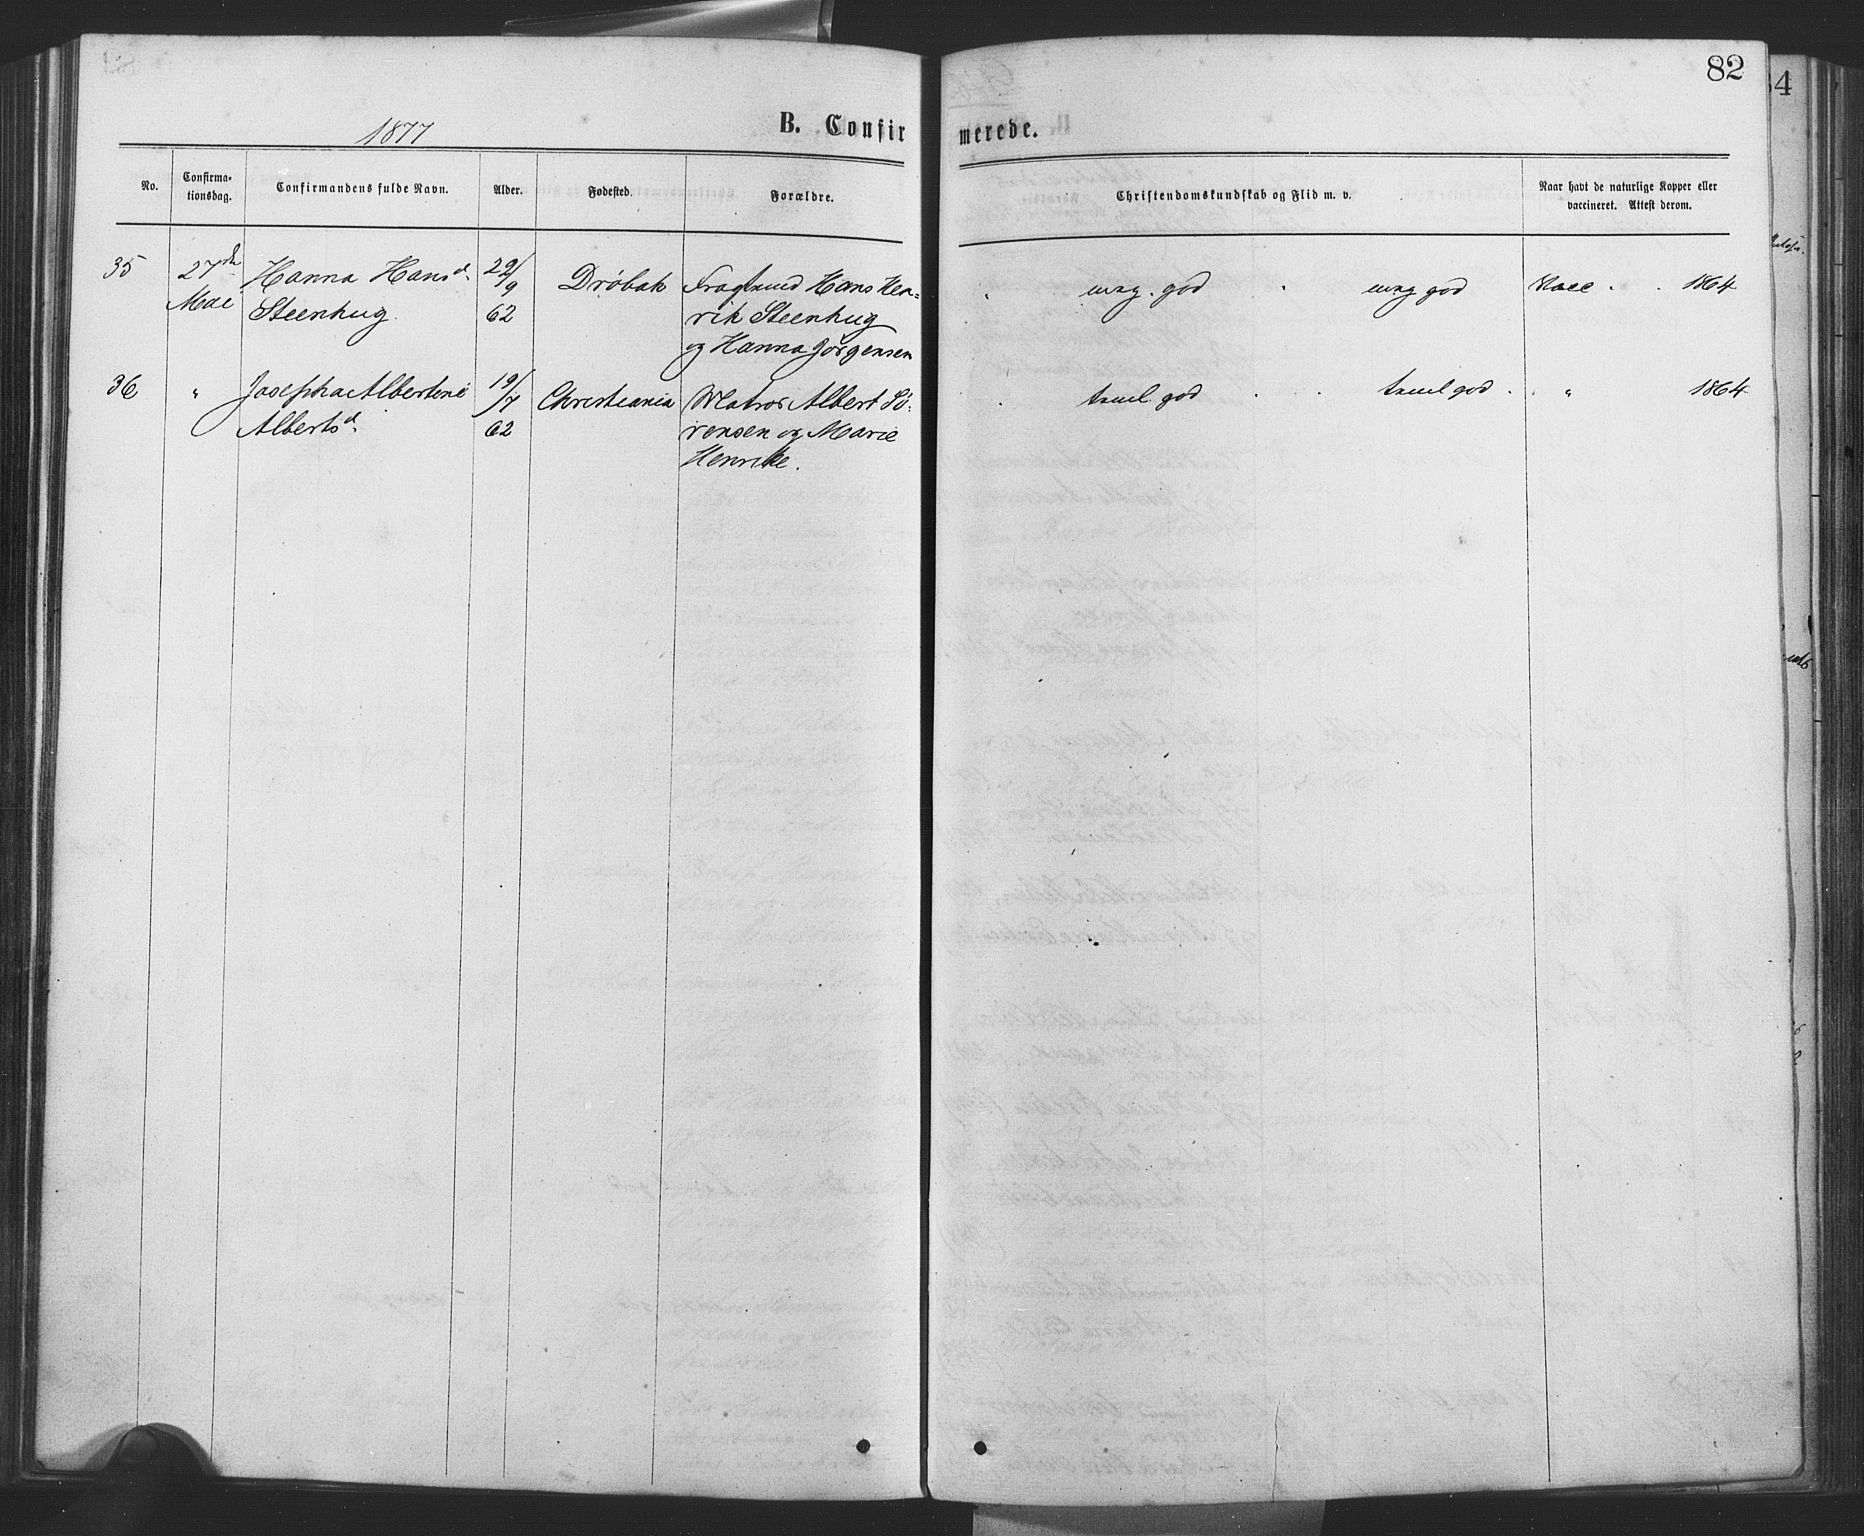 82
1877
B. Confirmerede.
No.
Confirma-
tionsdag.
Confirmandens fulde Navn.
Alder.
Fødested.
Forældre.
Christendomskundskab og Flid m. v.
Naar havt de naturlige Kopper eller
vaccineret. Attest derom.
35
27de
Mai
Hanna Hansd.
Steenhug.
29/9
62
Drøbak
Hans Hen=
rik Steenhug
og Hanna Jørgensen
meg. god
meg god
Vacc.
1864
36
"
Josepha Albertine
Albertsd.
19/7
62
Christiania
Matros Albert Sö-
rensen og Marie
Henrike.
teml. god
teml god
"
1864
84